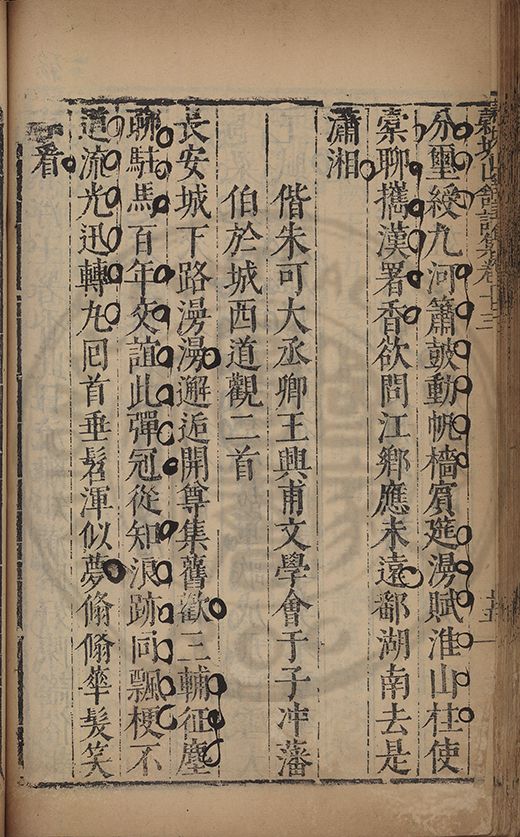 分璽綬九河簫鼓動帆檣賓筵漫賦淮山桂使
槖聊攜漢署香欲問江鄉應未遠鄱湖南去是
瀟湘
偕朱可大丞卿王興甫文學會于子冲藩
伯於城西道觀二首
長安城下路漫漫邂逅開尊集舊歡三輔征塵
聊駐馬百年交誼此彈冠從知浪跡同飄梗不
道流光迅轉丸囘首垂髫渾似夢翛翛華髮笑
看